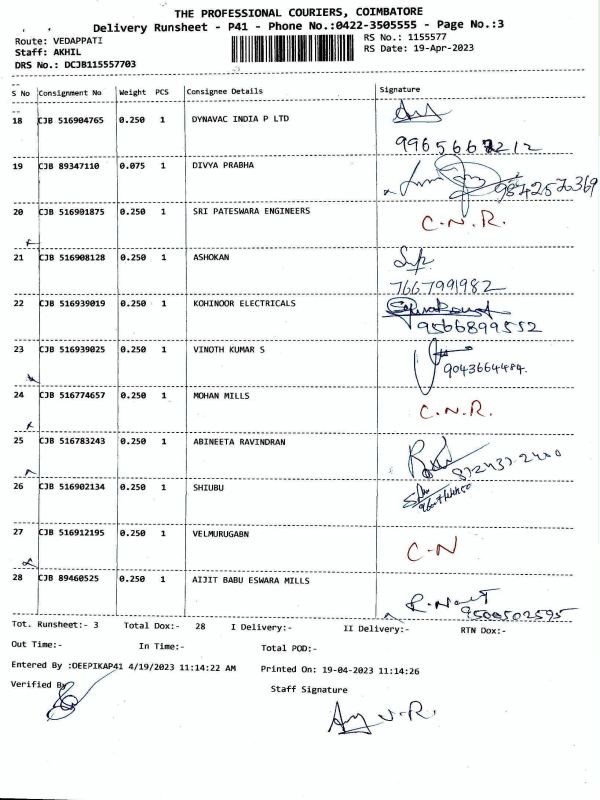 THE PROFESSIONAL COURIERS, COIMBATORE
Delivery Runsheet - P41 - Phone No.:0422-3505555 - Page No.:3
Route: VEDAPPATI RS No.: 1155577
Staff: AKHIL RS Date: 19-Apr-2023
DRS No.: DCJB115557703
S No Consignment No Weight PCS Consignee Details Signature
18 CJB 516904765 0.250 1 DYNAVAC INDIA P LTD
19 CJB 89347110 0.075 1 DIVYA PRABHA
20 CJB 516901875 0.250 1 SRI PATESWARA ENGINEERS C.N.R.
21 CJB 516908128 0.250 1 ASHOKAN
7667991982
22 CJB 516939019 0.250 1 KOHINOOR ELECTRICALS
9566899552
23 CJB 516939025 0.250 1 VINOTH KUMAR S
9043664484.
24 CJB 516774657 0.250 1 MOHAN MILLS C.N.R.
25 CJB 516783243 0.250 1 ABINEETA RAVINDRAN
26 CJB 516902134 0.250 1 SHIUBU
27 CJB 516912195 0.250 1 VELMURUGABN C-N
28 CJB 89460525 0.250 1 AIJIT BABU ESWARA MILLS
9500502595
Tot. Runsheet:- 3 Total Dox:- 28 I Delivery:- II Delivery:- RTN Dox:-
Out Time:- In Time:- Total POD:-
Entered By :DEEPIKAP41 4/19/2023 11:14:22 AM Printed On: 19-04-2023 11:14:26
Verified By Staff Signature